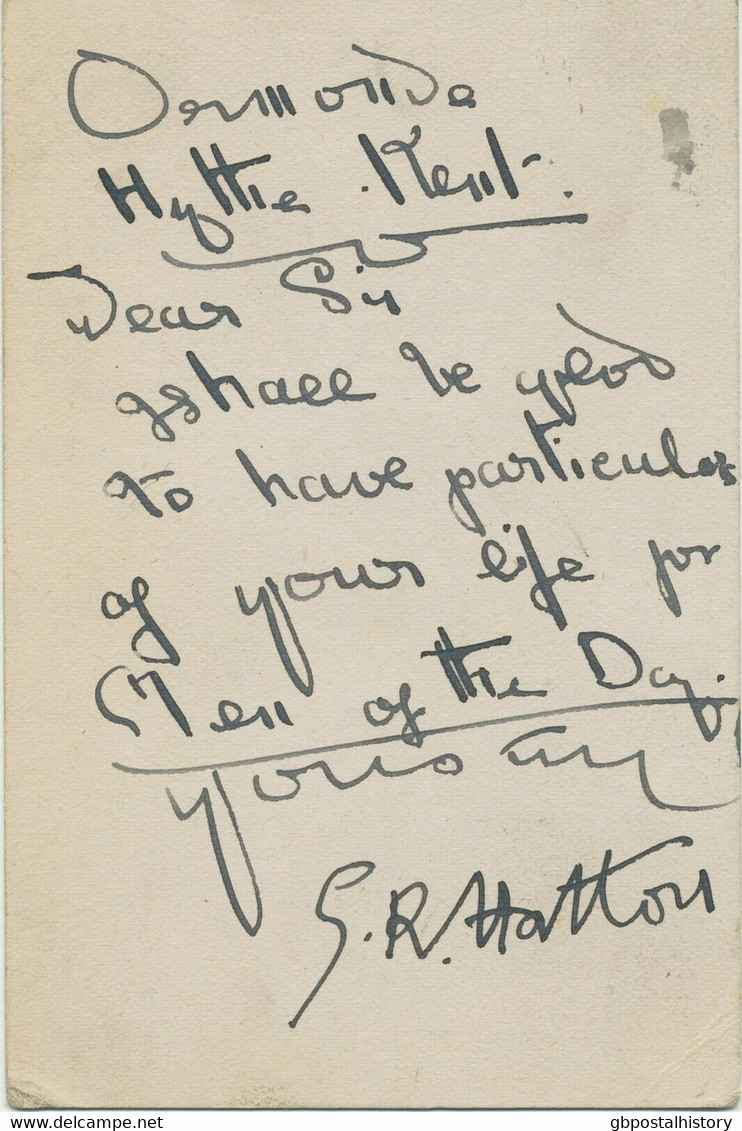 Ormonde
Hythe Kent.
Dear Sir
I shall be glad
to have particulars
of your life for
Men of the Day.
yours try
G.R. Hatton
delcampe.net
gbpostalhistory